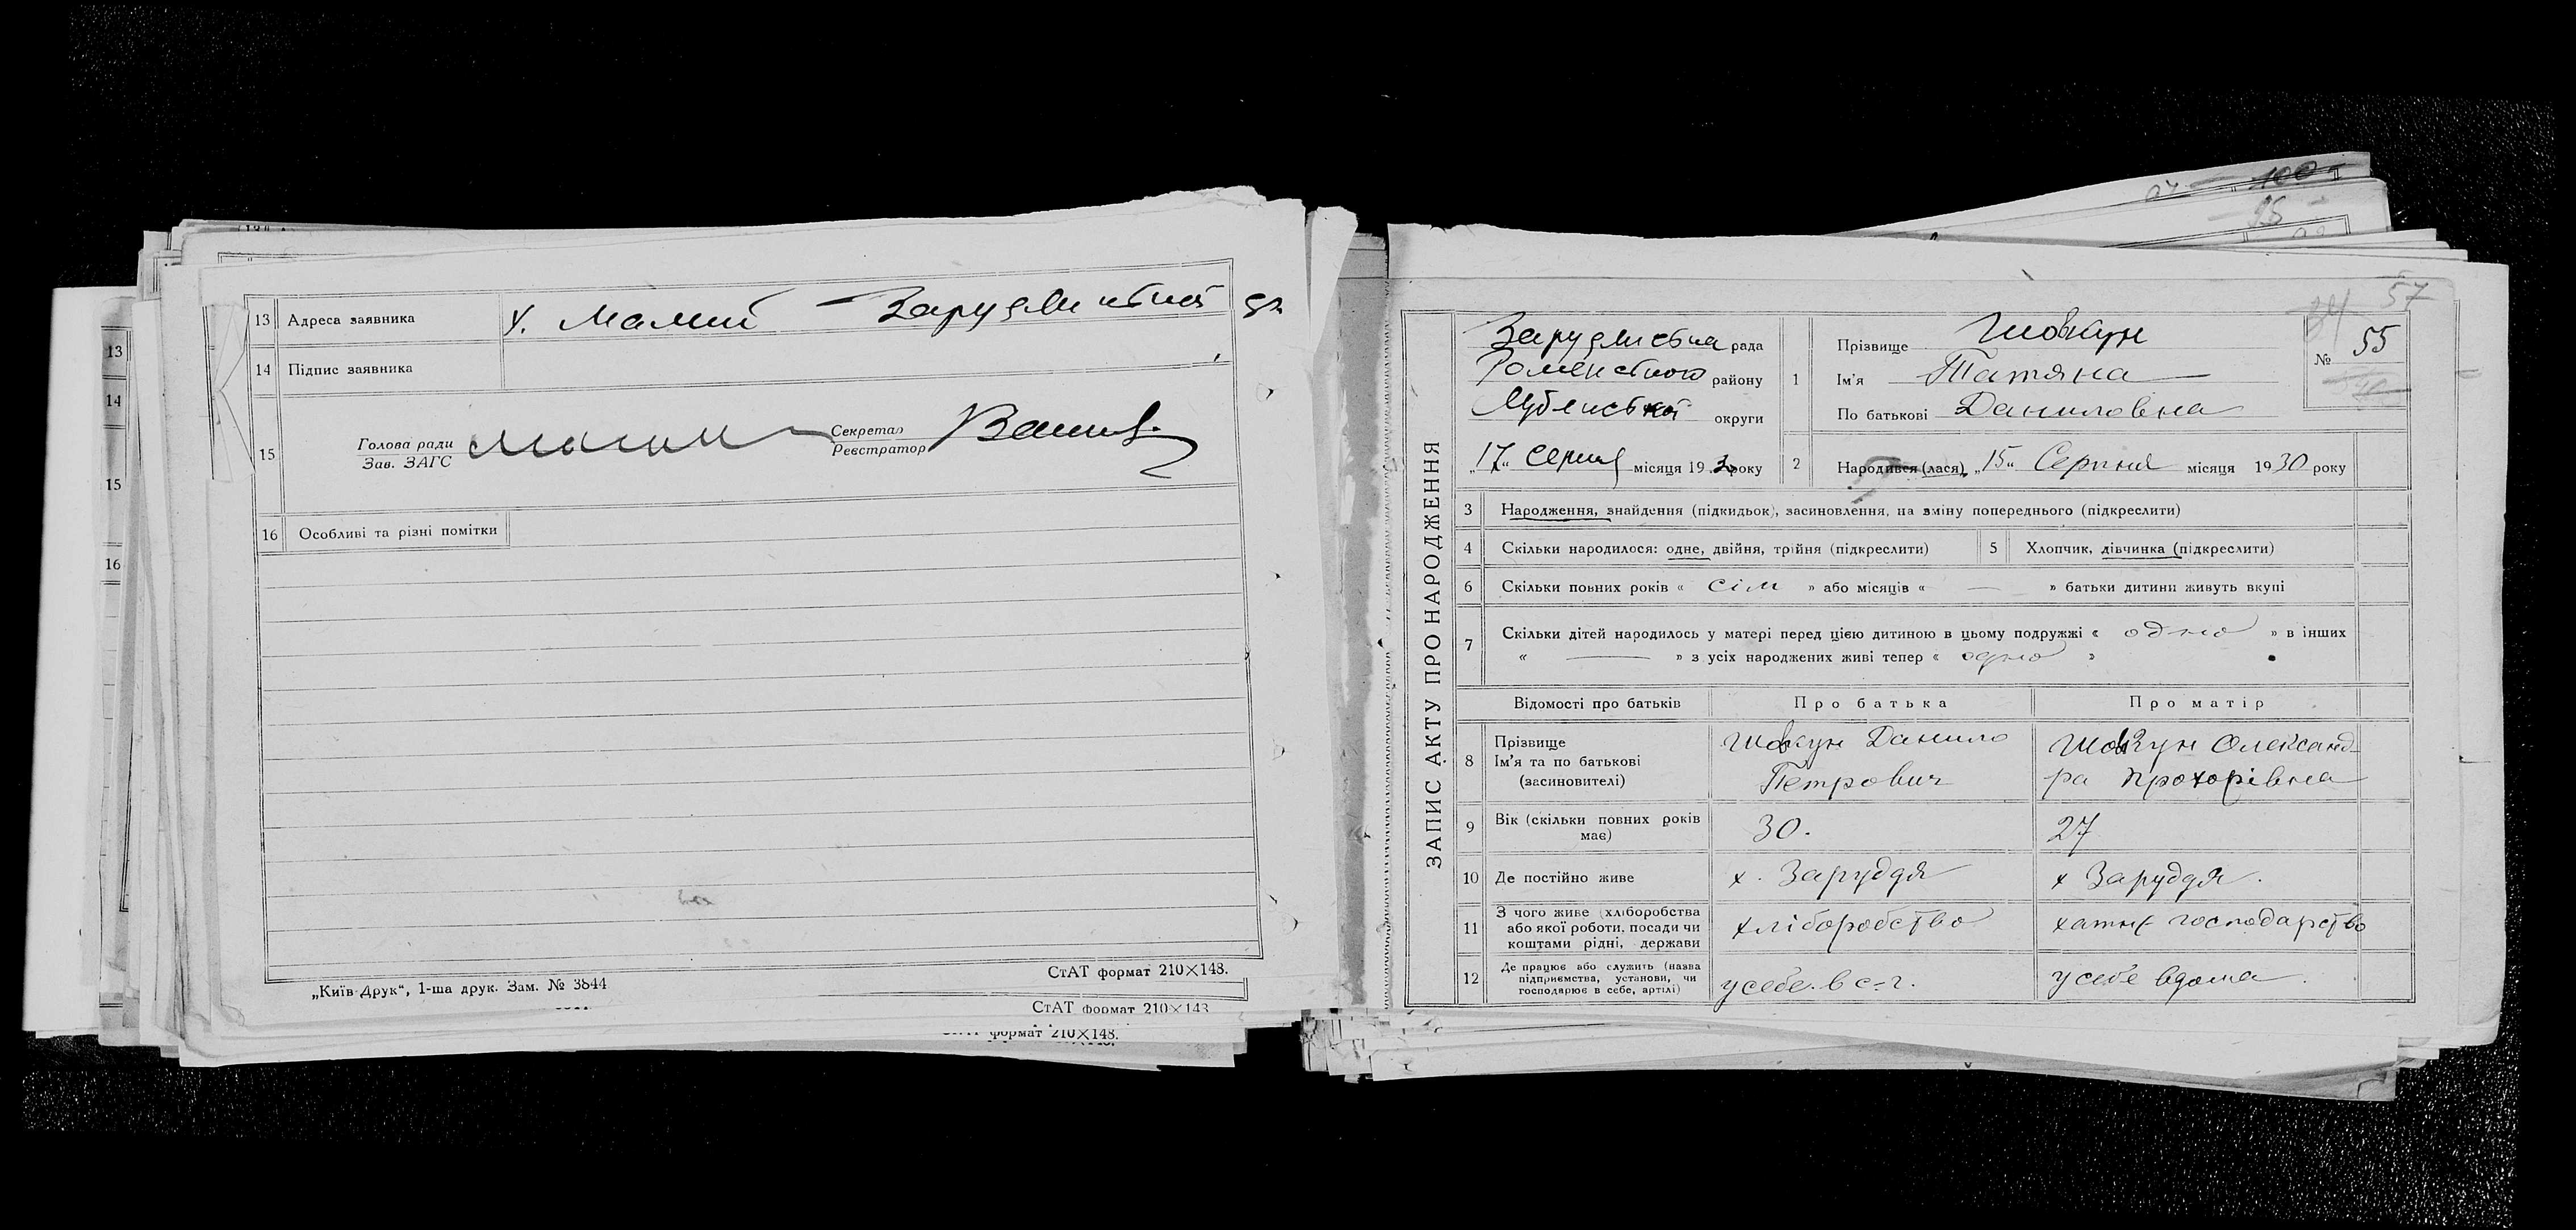 13 Адреса заявника х. Малий Зарудянської
14 Підпис заявника
15 Голова ради
Зав. ЗАГС
Секретар
Реєстратор
16 Особливі та різні помітки
„Київ-Друк“, 1-ша друк. Зам. № 3844
СтАТ формат 210×148.
СтАТ формат 210×143
формат 210×148.
13
14
15
16
100
95
57
ЗАПИС АКТУ ПРО НАРОДЖЕННЯ
рада
Роменського району
Лубенської округи
„17“ серпня місяця 193 року
1 Прізвище Шовкун
Ім'я Татяна
По батькові Даниловна
№ 55
2 Народився (лася) „15“ Серпня місяця 1930 року
3 Народження, знайдення (підкидьок), засиновлення, на зміну попереднього (підкреслити)
4 Скільки народилося: одне, двійня, трійня (підкреслити) 5 Хлопчик, дівчинка (підкреслити)
6 Скільки повних років « сім » або місяців « — » батьки дитини живуть вкупі
7 Скільки дітей народилось у матері перед цією дитиною в цьому подружжі « одно » в інших
« — » з усіх народжених живі тепер « одно »
Відомості про батьків Про батька Про матір
8 Прізвище Ім'я та по батькові (засиновителі) Шовкун Данило Петрович Шовкун Олександ-
ра Прохорівна
9 Вік (скільки повних років має) 30. 27
10 Де постійно живе х. Заруддя х Заруддя.
11 З чого живе (хліборобства або якої роботи, посади чи коштами рідні, держави хліборобство хатнє господарство
12 Де працює або служить (назва підприємства, установи, чи господарює в себе, артілі) у себе в с-г. у себе вдома